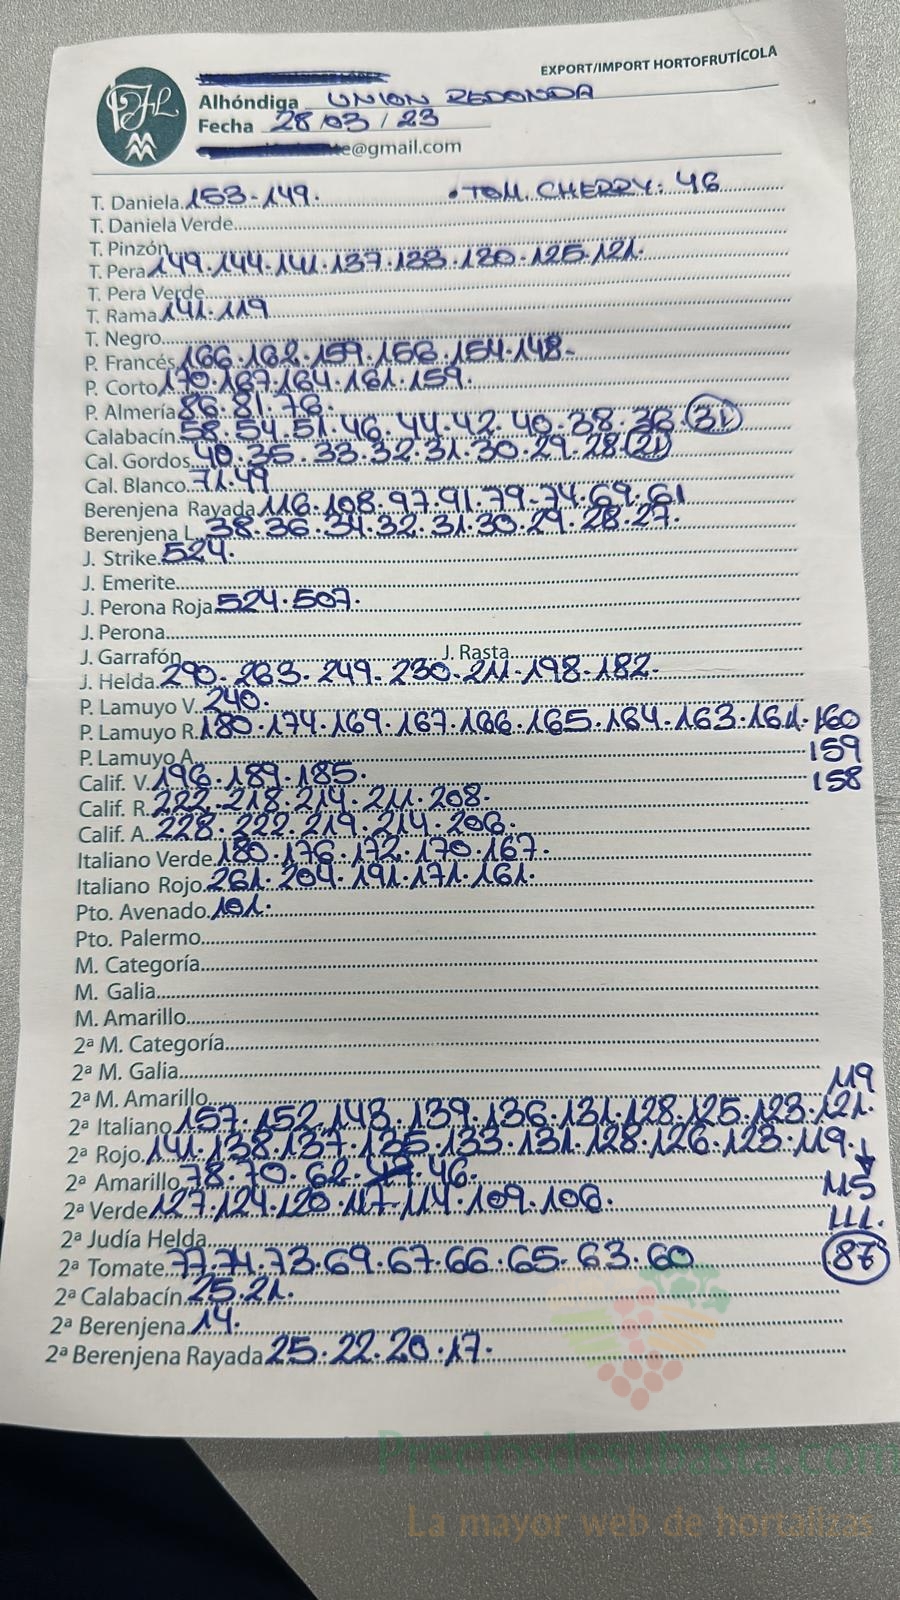 EXPORT/IMPORT HORTOFRUTÍCOLA
Alhóndiga UNION REDONDA
Fecha 28/03/23
e@gmail.com
T. Daniela 153.149. • TOM. CHERRY: 46
T. Daniela Verde
T. Pinzón
T. Pera 149.144.141.137.133.130.125.121.
T. Pera Verde
T. Rama 141.119
T. Negro
P. Francés 166.162.159.156.154.148.
P. Corto 170.167.164.161.159.
P. Almería 86.81.76.
Calabacín 58.54.51.46.44.42.40.38.36.31
Cal. Gordos 40.35.33.32.31.30.29.28.21
Cal. Blanco 71.49
Berenjena Rayada 116.108.97.91.79.74.69.61
Berenjena L. 38.36.34.32.31.30.29.28.27.
J. Strike 524.
J. Emerite
J. Perona Roja 524.507.
J. Perona
J. Garrafón J. Rasta
J. Helda 290.263.249.230.211.198.182.
P. Lamuyo V. 240.
P. Lamuyo R. 180.174.169.167.166.165.164.163.161.160
P. Lamuyo A. 159
Calif. V. 196.189.185. 158
Calif. R. 222.218.214.211.208.
Calif. A. 228.222.219.214.206.
Italiano Verde 180.176.172.170.167.
Italiano Rojo 261.204.191.171.161.
Pto. Avenado 101.
Pto. Palermo
M. Categoría
M. Galia
M. Amarillo
2ª M. Categoría
2ª M. Galia
2ª M. Amarillo 119
2ª Italiano 157.152.143.139.136.131.128.125.123.121.
2ª Rojo 141.138.137.135.133.131.128.126.123.119.
2ª Amarillo 78.70.62. 46. 115
2ª Verde 127.124.120.117.114.109.106. 111.
2ª Judía Helda
2ª Tomate 77.74.73.69.67.66.65.63.60 87
2ª Calabacín 25.21.
2ª Berenjena 14.
2ª Berenjena Rayada 25.22.20.17.
Preciosdesubasta.com
La mayor web de hortalizas